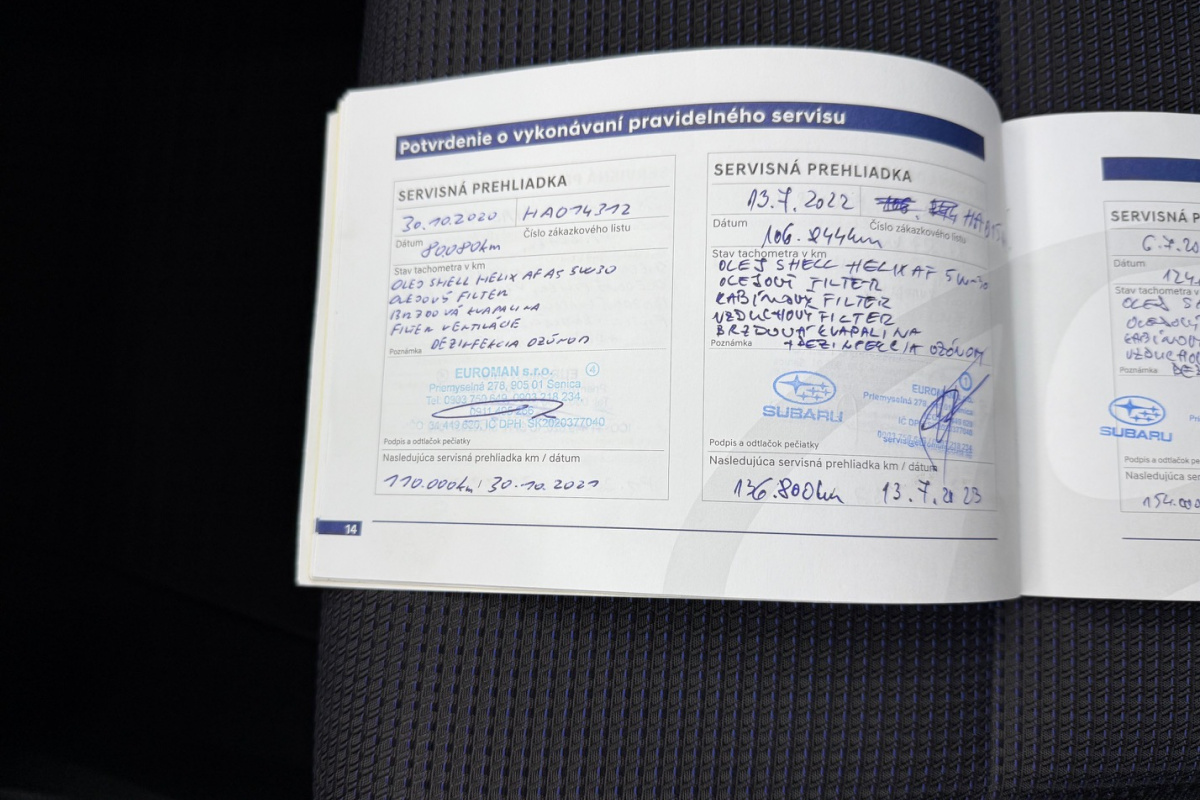 Potvrdenie o vykonávaní pravidelného servisu
SERVISNÁ PREHLIADKA
30.10.2020 HA014312
Dátum Číslo zákazkového listu
80080km
Stav tachometra v km
OLEJ SHELL HELIX AF A5 5W30
OLEJOVÝ FILTER
BRZDOVÁ KVAPALINA
FILTER VENTILÁCIE
Poznámka DEZINFEKCIA OZÓNOM
EUROMAN s.r.o. 4
Priemyselná 278, 905 01 Senica
Tel: 0903 750 649, 0903 218 234,
IČ DPH: SK2020377040
Podpis a odtlačok pečiatky
Nasledujúca servisná prehliadka km / dátum
110.000km / 30.10.2021
14
SERVISNÁ PREHLIADKA
13.7.2022
Dátum Číslo zákazkového listu
106.844km
Stav tachometra v km
OLEJ SHELL HELIX AF 5W-30
OLEJOVÝ FILTER
KABÍNOVÝ FILTER
VZDUCHOVÝ FILTER
BRZDOVÁ KVAPALINA
Poznámka + DEZINFEKCIA OZÓNOM
SUBARU
EUROMAN
Priemyselná 278,
Podpis a odtlačok pečiatky
Nasledujúca servisná prehliadka km / dátum
136.800km 13.7.2023
SERVISNÁ P
6.7.20
Dátum
124
Stav tachometra v
OLEJ S
OLEJOVÝ
KABÍNOVÝ
VZDUCHO
Poznámka
SUBARU
Podpis a odtlačok pe
Nasledujúca ser
154.000